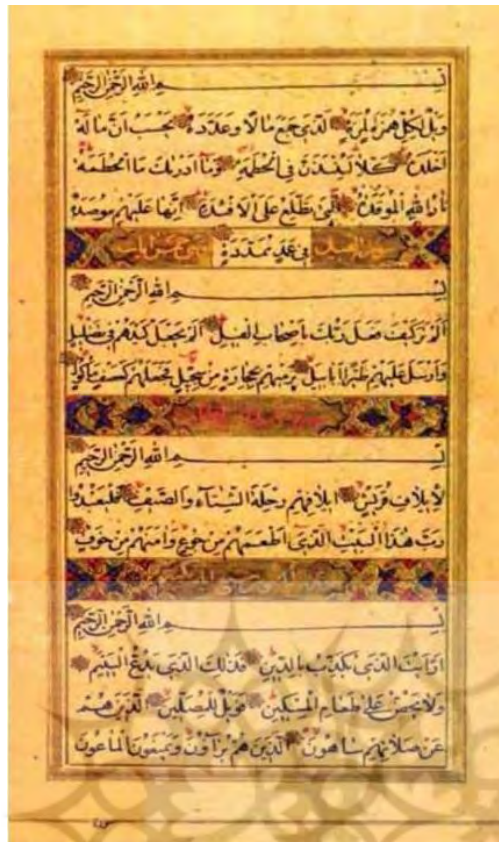 بِسْمِ اللهِ الرَّحْمٰنِ الرَّحِيمِ
وَيْلٌ لِكُلِّ هُمَزَةٍ لُمَزَةٍ الَّذِي جَمَعَ مَالًا وَعَدَّدَهُ يَحْسَبُ أَنَّ مَالَهُ
أَخْلَدَهُ كَلَّا لَيُنْبَذَنَّ فِي الْحُطَمَةِ وَمَا أَدْرٰيكَ مَا الْحُطَمَةُ
نَارُ اللهِ الْمُوقَدَةُ الَّتِي تَطَّلِعُ عَلَى الْأَفْئِدَةِ إِنَّهَا عَلَيْهِمْ مُوصَدَةٌ
فِي عَمَدٍ مُمَدَّدَةٍ
بِسْمِ اللهِ الرَّحْمٰنِ الرَّحِيمِ
أَلَمْ تَرَ كَيْفَ فَعَلَ رَبُّكَ بِأَصْحَابِ الْفِيلِ أَلَمْ يَجْعَلْ كَيْدَهُمْ فِي تَضْلِيلٍ
وَأَرْسَلَ عَلَيْهِمْ طَيْرًا أَبَابِيلَ تَرْمِيهِمْ بِحِجَارَةٍ مِنْ سِجِّيلٍ فَجَعَلَهُمْ كَعَصْفٍ مَأْكُولٍ
بِسْمِ اللهِ الرَّحْمٰنِ الرَّحِيمِ
لِإِيلَافِ قُرَيْشٍ إِيلَافِهِمْ رِحْلَةَ الشِّتَاءِ وَالصَّيْفِ فَلْيَعْبُدُوا
رَبَّ هٰذَا الْبَيْتِ الَّذِي أَطْعَمَهُمْ مِنْ جُوعٍ وَآمَنَهُمْ مِنْ خَوْفٍ
بِسْمِ اللهِ الرَّحْمٰنِ الرَّحِيمِ
أَرَأَيْتَ الَّذِي يُكَذِّبُ بِالدِّينِ فَذٰلِكَ الَّذِي يَدُعُّ الْيَتِيمَ
وَلَا يَحُضُّ عَلَى طَعَامِ الْمِسْكِينِ فَوَيْلٌ لِلْمُصَلِّينَ الَّذِينَ هُمْ
عَنْ صَلَاتِهِمْ سَاهُونَ الَّذِينَ هُمْ يُرَاؤُنَ وَيَمْنَعُونَ الْمَاعُونَ